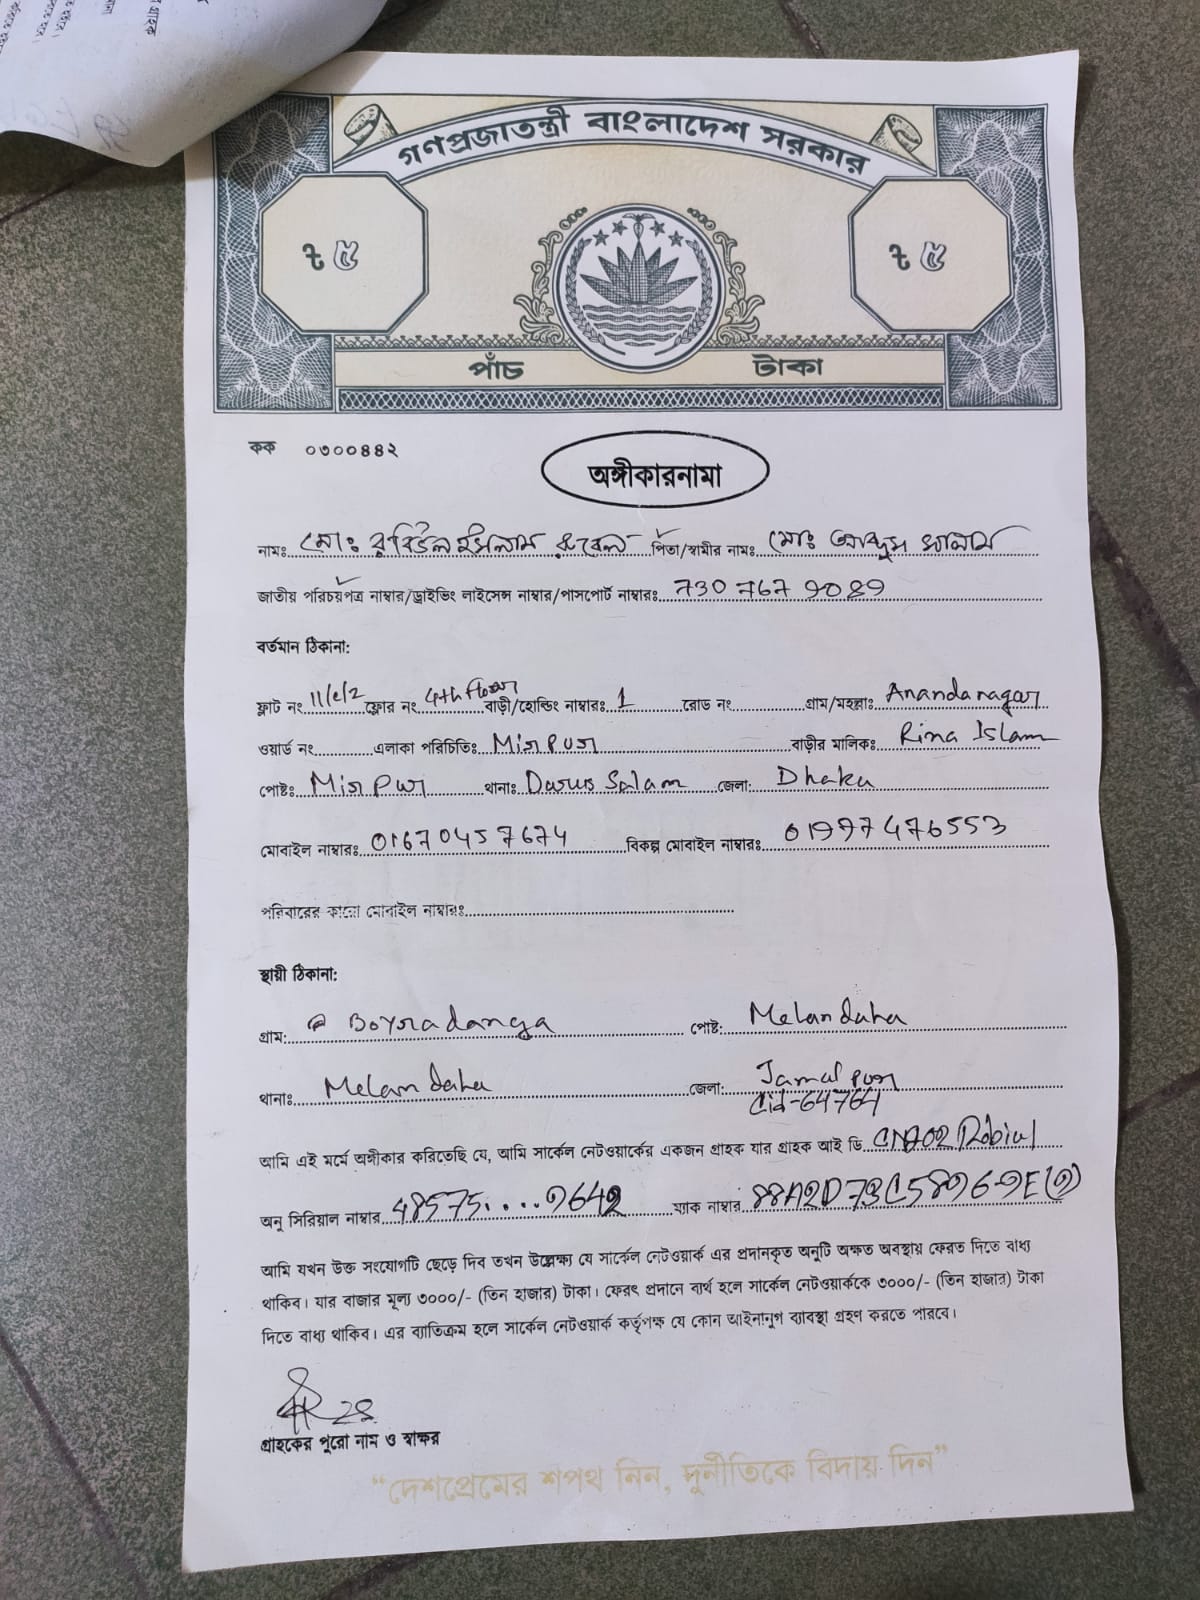 গণপ্রজাতন্ত্রী বাংলাদেশ সরকার
৳ ৫ ৳ ৫
পাঁচ টাকা
কক ০৩০০৪৪২
অঙ্গীকারনামা
নামঃ মোঃ রবিউল ইসলাম রুবেল পিতা/স্বামীর নামঃ মোঃ আব্দুস সালাম
জাতীয় পরিচয়পত্র নাম্বার/ড্রাইভিং লাইসেন্স নাম্বার/পাসপোর্ট নাম্বারঃ 730 767 9089
বর্তমান ঠিকানা:
ফ্লাট নং 11/e/2 ফ্লোর নং 4th floor বাড়ী/হোল্ডিং নাম্বারঃ 1 রোড নং গ্রাম/মহল্লাঃ Anandanagar
ওয়ার্ড নং এলাকা পরিচিতিঃ Mirpur বাড়ীর মালিকঃ Rina Islam
পোষ্টঃ Mirpur থানাঃ Darus Salam জেলা: Dhaka
মোবাইল নাম্বারঃ 01670457674 বিকল্প মোবাইল নাম্বারঃ 01997476553
পরিবারের কারো মোবাইল নাম্বারঃ
স্থায়ী ঠিকানা:
গ্রাম: Boyradanga পোষ্ট: Melandaha
থানাঃ Melandaha জেলা: Jamalpur
Cid-64764
আমি এই মর্মে অঙ্গীকার করিতেছি যে, আমি সার্কেল নেটওয়ার্কের একজন গ্রাহক যার গ্রাহক আই ডি Robiul
অনু সিরিয়াল নাম্বার 48575....9642 ম্যাক নাম্বার
আমি যখন উক্ত সংযোগটি ছেড়ে দিব তখন উল্লেক্ষ্য যে সার্কেল নেটওয়ার্ক এর প্রদানকৃত অনুটি অক্ষত অবস্থায় ফেরত দিতে বাধ্য
থাকিব। যার বাজার মূল্য ৩০০০/- (তিন হাজার) টাকা। ফেরৎ প্রদানে ব্যর্থ হলে সার্কেল নেটওয়ার্ককে ৩০০০/- (তিন হাজার) টাকা
দিতে বাধ্য থাকিব। এর ব্যাতিক্রম হলে সার্কেল নেটওয়ার্ক কর্তৃপক্ষ যে কোন আইনানুগ ব্যাবস্থা গ্রহণ করতে পারবে।
গ্রাহকের পুরো নাম ও স্বাক্ষর
“দেশপ্রেমের শপথ নিন, দুর্নীতিকে বিদায় দিন”